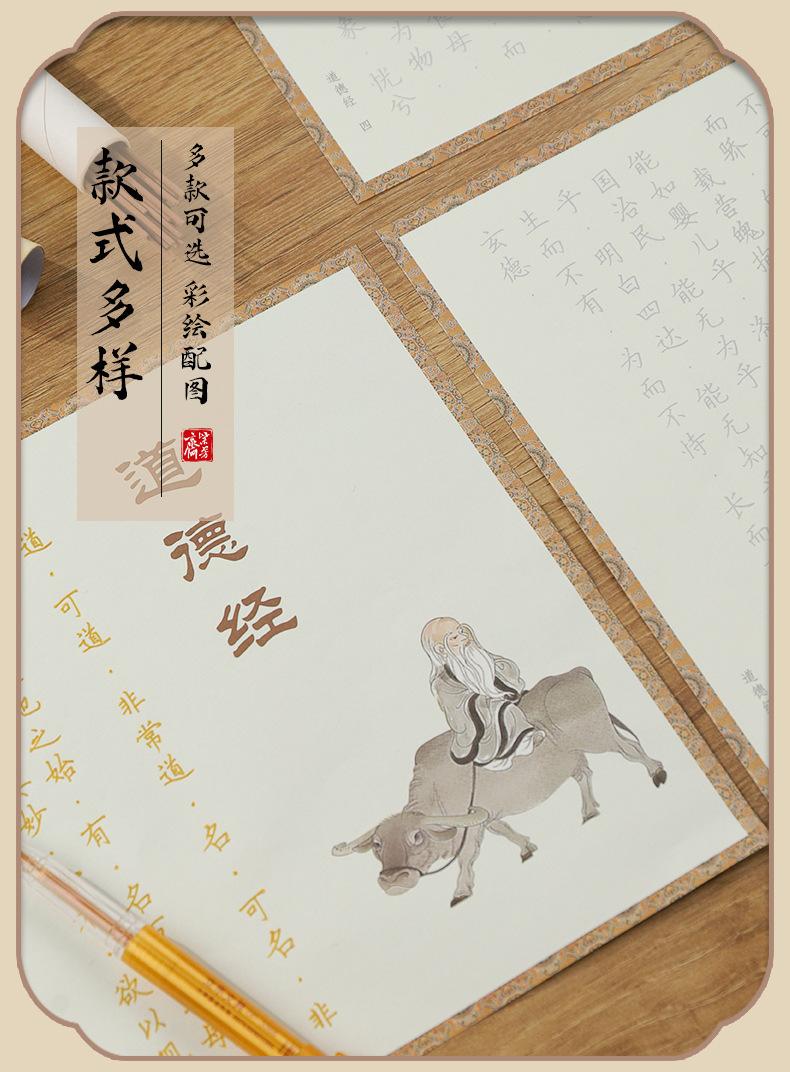 款式多样
多款可选 彩绘配图
道德经
道·可道·非常道·名·可名·非
之始·有名
妙
欲以
象
为物
母
而
恍兮
道德经 四
不可
而骄
载营魄抱
能如婴儿乎·涤
国治民·能无为乎
乎·明白四达·能无知乎
生而·不有·为而不恃·长而
玄德
道德